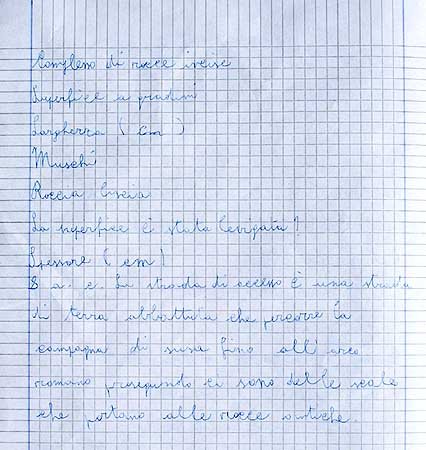 Complesso di rocce incise
Superfice a gradini
Larghezza ( cm )
Muschi
Roccia liscia
La superfice è stata levigata?
Spessore ( cm )
8 a. e. La strada di accesso è una strada
di terra abbattuta che percorre la
campagna di susa fino all'arco
romano proseguendo ci sono delle scale
che portano alle rocce